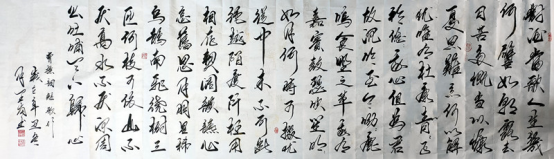 對酒當歌人生幾
何譬如朝露去
日苦多慨當以慷
憂思難忘何以解
憂唯有杜康青青子
衿悠悠我心但為君
故沉吟至今呦呦鹿
鳴食野之苹我有
嘉賓鼓瑟吹笙明
如月何時可掇憂
從中來不可斷
絕越陌度阡枉用
相存契闊談讌心
念舊恩月明星稀
烏鵲南飛繞樹三
匝何枝可依山不
厭高水不厭深周
公吐哺天下歸心
曹操詩短歌行